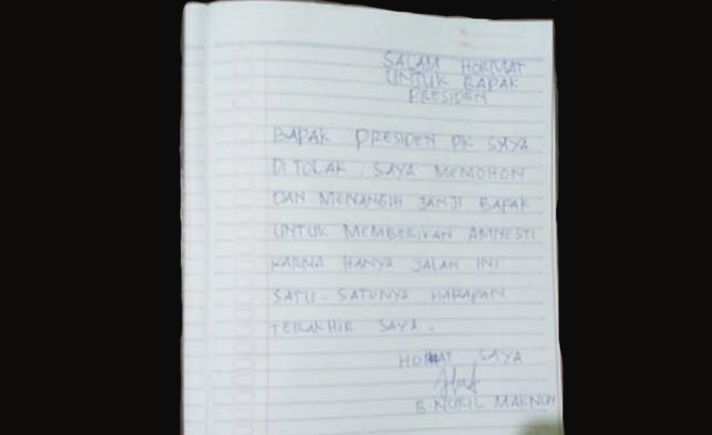 SALAM HORMAT
UNTUK BAPAK
PRESIDEN
BAPAK PRESIDEN PK SAYA
DITOLAK. SAYA MEMOHON
DAN MENANGIH JANJI BAPAK
UNTUK MEMBERIKAN AMNESTI
KARNA HANYA JALAN INI
SATU-SATUNYA HARAPAN
TERAKHIR SAYA.
HORMAT SAYA
B.NURIL MAKNUN